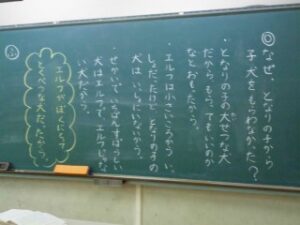 ◎なぜ、となりの子から
子犬をもらわなかった?
・となりの子の大せつな犬
だから、もらってもいいのか
なとおもったから。
・エルフは小さいころからいっ
しょだったけど、となりの子の
犬は、いっしょにいないから。
・せかいで、いちばんすばらしい
犬はエルフで、エルフじゃな
い犬だから。
エルフがぼくにとって
とくべつな犬だったから。